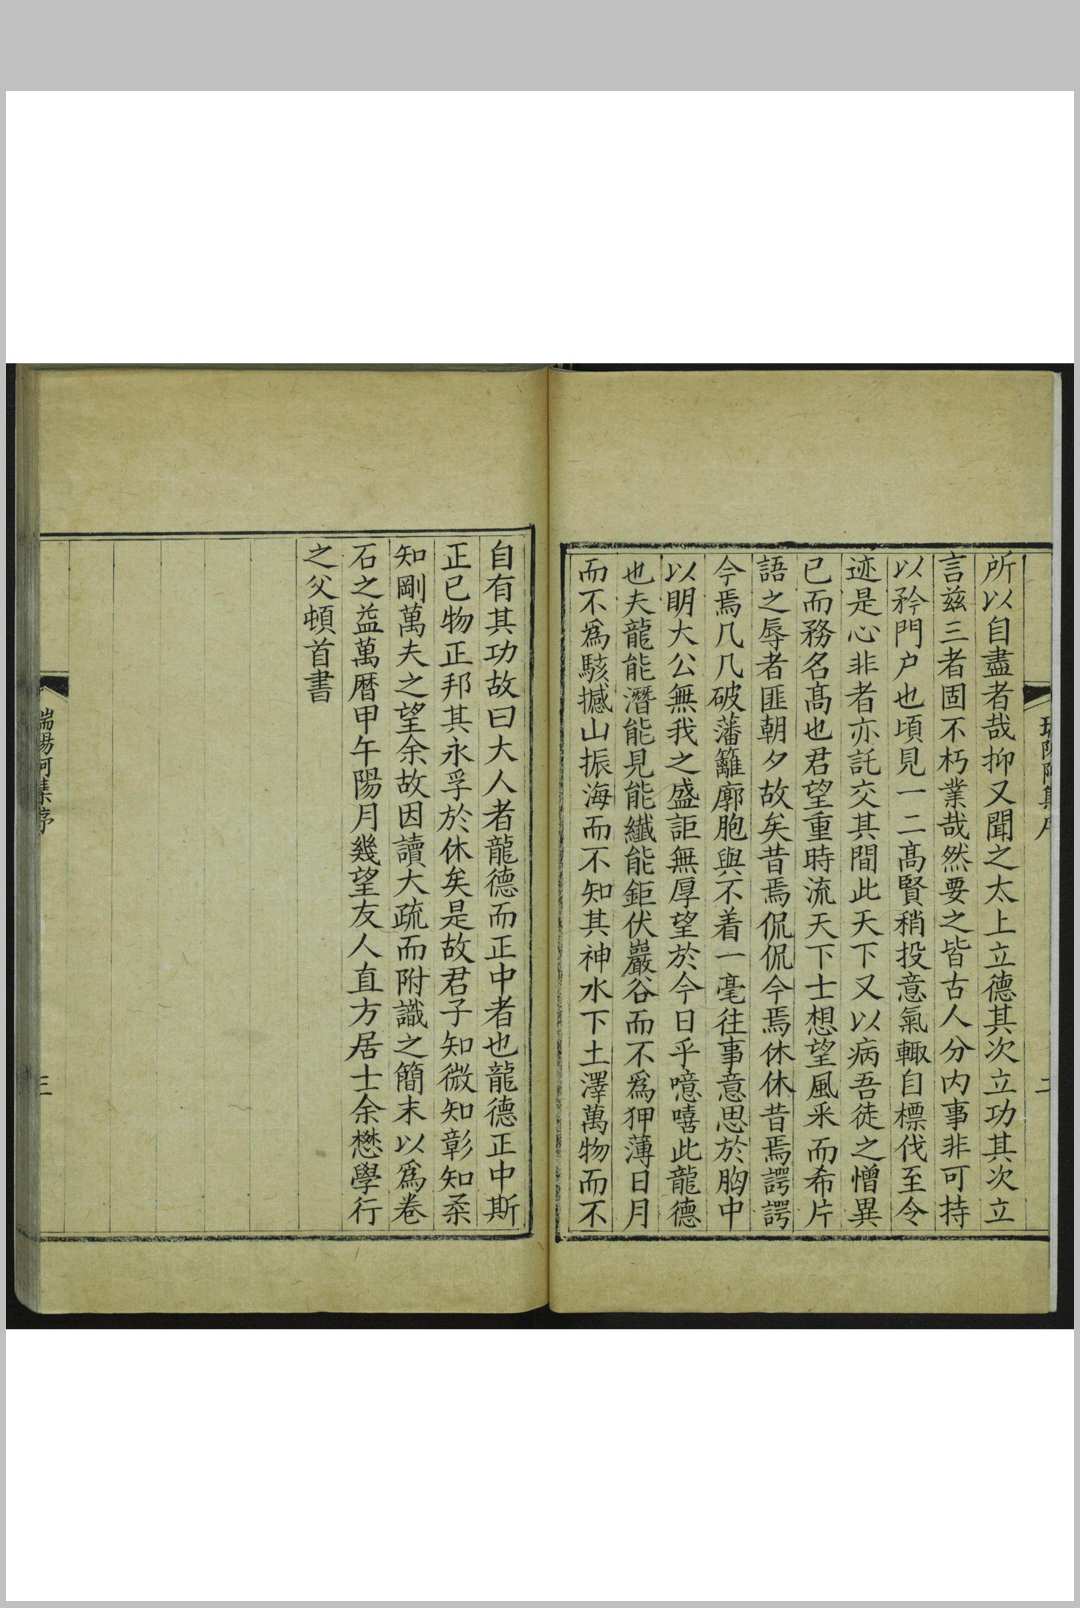 所以自盡者哉抑又聞之太上立德其次立功其次立
言茲三者固不朽業哉然要之皆古人分內事非可持
以矜門户也頃見一二高賢稍投意氣輙自標伐至令
迹是心非者亦託交其間此天下又以病吾徒之憎異
已而務名高也君望重時流天下士想望風采而希片
語之辱者匪朝夕故矣昔焉侃侃今焉休休昔焉諤諤
今焉几几破藩籬廓胞與不着一毫往事意思於胸中
以明大公無我之盛詎無厚望於今日乎噫嘻此龍德
也夫龍能潛能見能纖能鉅伏巖谷而不為狎薄日月
而不為駭撼山振海而不知其神水下土澤萬物而不
自有其功故曰大人者龍德而正中者也龍德正中斯
正已物正邦其永孚於休矣是故君子知微知彰知柔
知剛萬夫之望余故因讀大疏而附識之簡末以為卷
石之益萬曆甲午陽月幾望友人直方居士余懋學行
之父頓首書
端陽阿集序
三